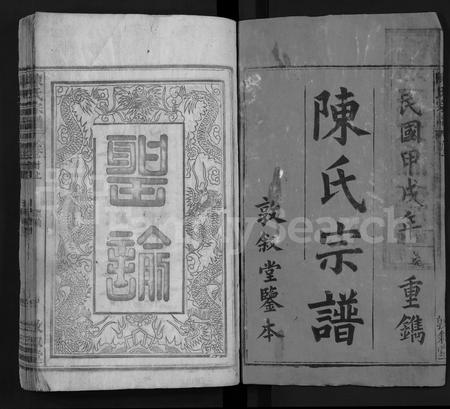 民國甲戌年
重鐫
陳氏宗譜
敦叙堂鑒本
聖諭
FamilySearch